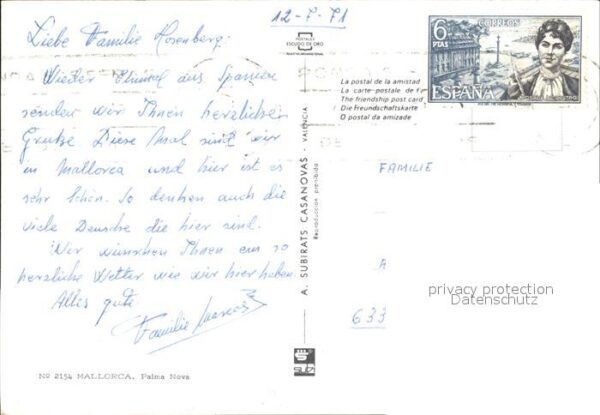 12-7-71
Liebe Familie Rosenberg:
Wieder Einmal aus Spanien
senden wir Ihnen herzlicher
Grütze. Diese Mal sind wir
in Mallorca und hier ist es
sehr schön. So denken auch die
viele Deutsche die hier sind.
Wir wünschen Ihnen ein so
herzliche Wetter wie wir hier haben.
Alles gute
Familie
No 2154 MALLORCA. Palma Nova
POSTALES
ESCUDO DE ORO
La postal de la amistad
La carte postale de
The friendship post card
Die Freundschaftskarte
O postal da amizade
A. SUBIRATS CASANOVAS - VALENCIA
Reproducción prohibida
6
PTAS
CORREOS
ESPAÑA
FAMILIE
A
633
privacy protection
Datenschutz